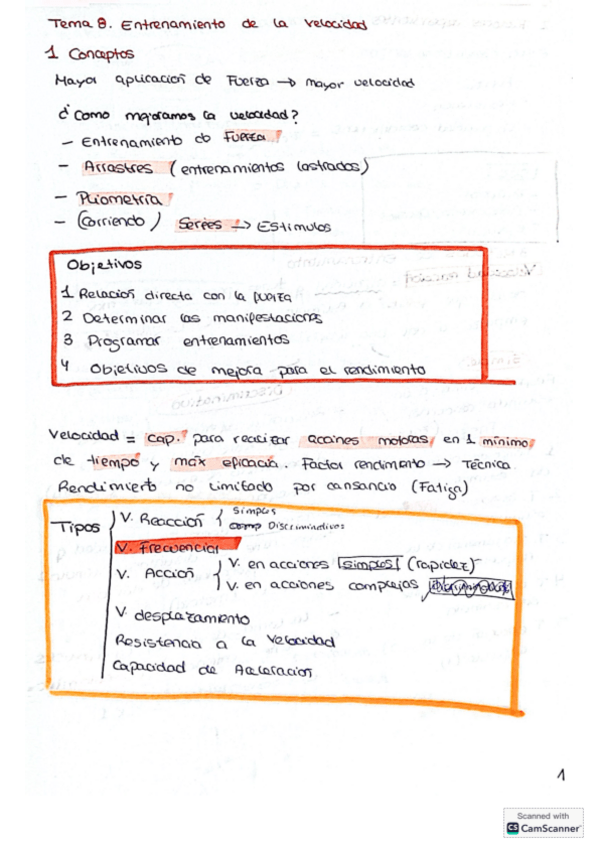 Tema 8. Entrenamiento de la velocidad
1 Conceptos
Mayor aplicación de Fuerza → mayor velocidad
¿Como mejoramos la velocidad?
– Entrenamiento de Fuerza
– Arrastres (entrenamientos lastrados)
– Pliometría
– (Corriendo) Series → Estímulos
Objetivos
1 Relación directa con la fuerza
2 Determinar las manifestaciones
3 Programar entrenamientos
4 Objetivos de mejora para el rendimiento
Velocidad = cap. para realizar acciones motoras en 1 mínimo
de tiempo y máx eficacia. Factor rendimiento → Técnica
Rendimiento no limitado por cansancio (Fatiga)
Tipos
V. Reacción { Simples
Discriminativos
V. Frecuencial
V. Acción { V. en acciones simples (rapidez)
V. en acciones complejas
V. desplazamiento
Resistencia a la velocidad
Capacidad de Aceleración
1
Scanned with
CS CamScanner